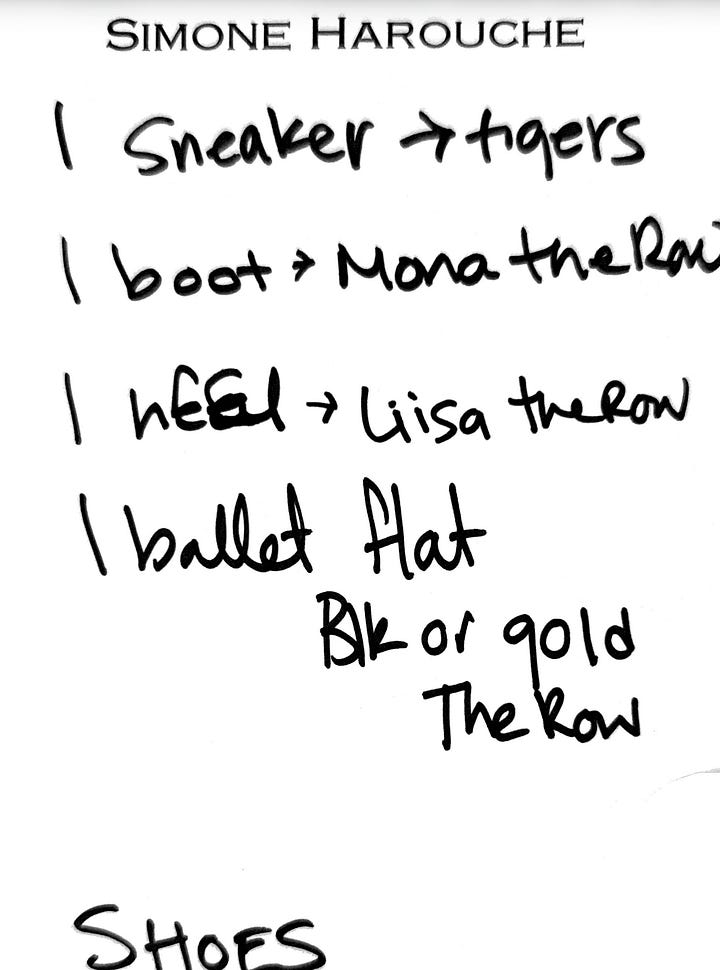 SIMONE HAROUCHE
1 Sneaker → tigers
1 boot → Mona the Row
1 hEEl → Liisa the Row
1 ballet flat
Blk or gold
The Row
SHOES